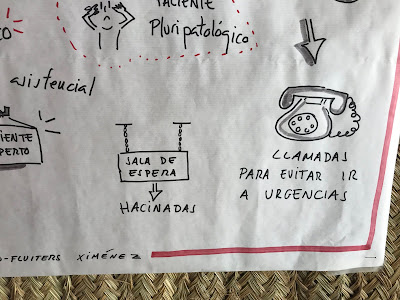 PACIENTE
Pluripatológico
CO
asistencial
IENTE
PERTO
SALA DE
ESPERA
HACINADAS
LLAMADAS
PARA EVITAR IR
A URGENCIAS
O-FLUITERS XIMÉNEZ